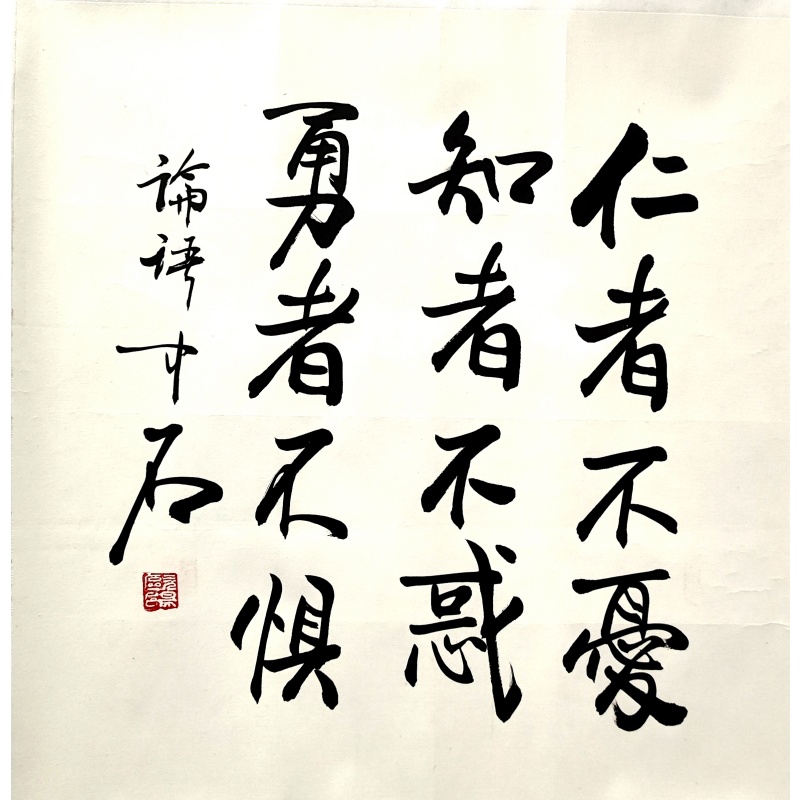 仁者不憂
知者不惑
勇者不惧
論語
石